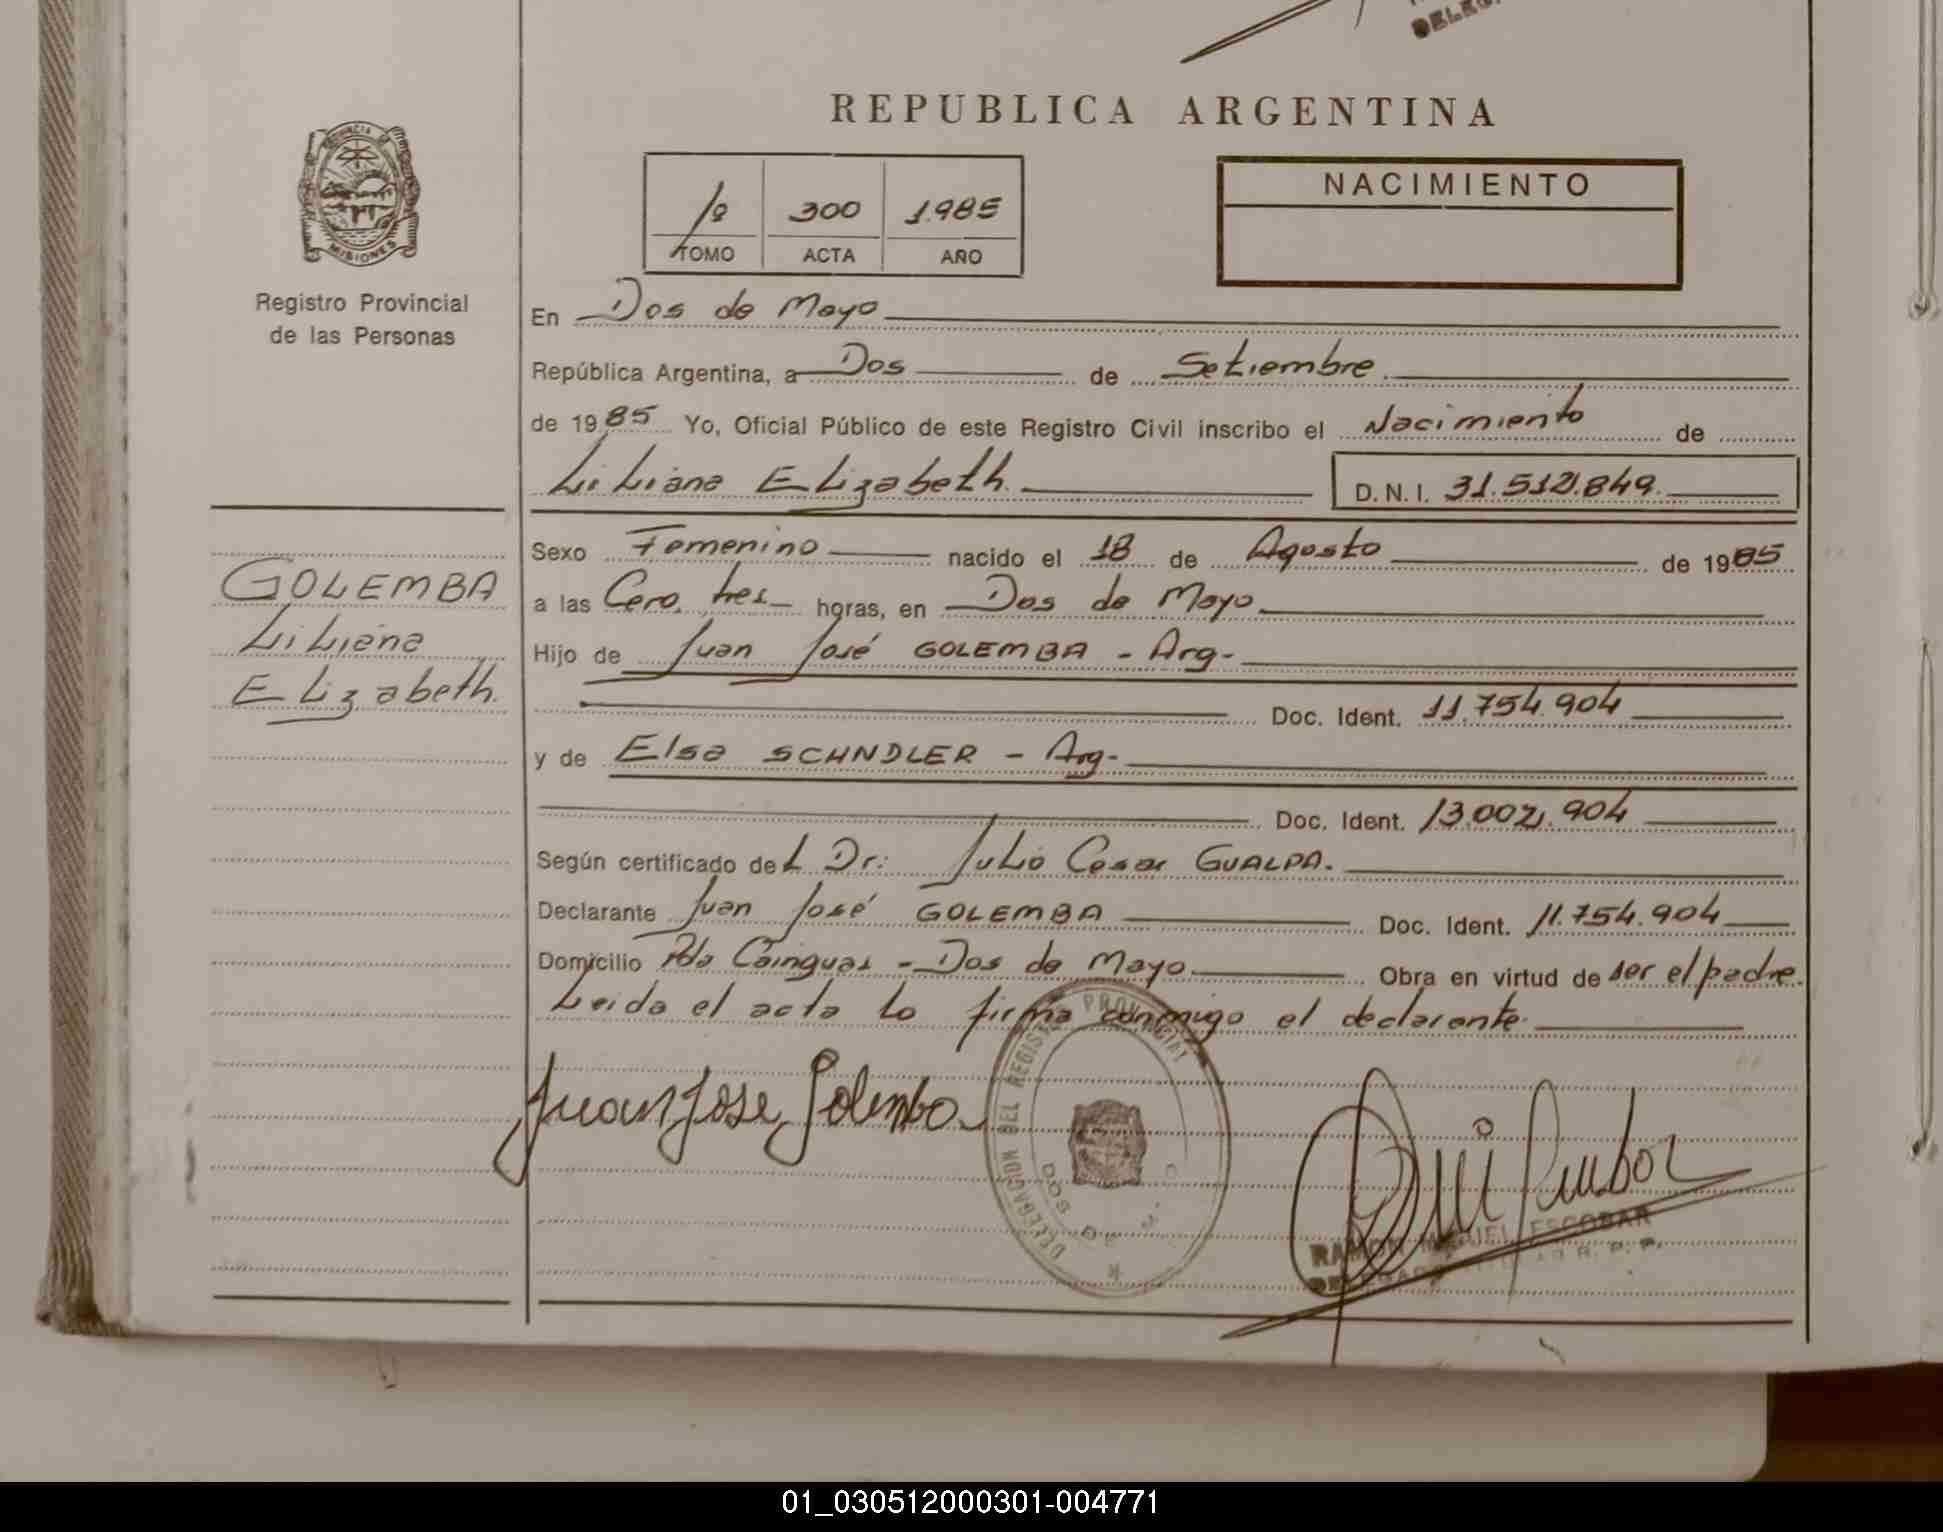 DELEG
REPUBLICA ARGENTINA
PROVINCIA
MISIONES
Registro Provincial
de las Personas
1º 300 1.985
TOMO ACTA AÑO
NACIMIENTO
En Dos de Mayo
República Argentina, a Dos de Setiembre
de 1985 Yo, Oficial Público de este Registro Civil inscribo el Nacimiento de
Liliana Elizabeth D.N.I. 31.512.849.
GOLEMBA
Liliana
Elizabeth.
Sexo Femenino nacido el 18 de Agosto de 1985
a las Cero, tres horas, en Dos de Mayo
Hijo de Juan José GOLEMBA - Arg-
Doc. Ident. 11.754.904
y de Elsa SCHNDLER - Arg-
Doc. Ident. 13.002.904
Según certificado del Dr: Julio Cesar GUALPA.
Declarante Juan José GOLEMBA Doc. Ident. 11.754.904
Domicilio Pdo Cainguas - Dos de Mayo Obra en virtud de ser el padre.
Leida el acta la firma conmigo el declarante.
Juan Jose Golemba
DELEGACION DEL REGISTRO PROVINCIAL
DOS DE M
RAMON MIGUEL ESCOBAR
01_030512000301-004771